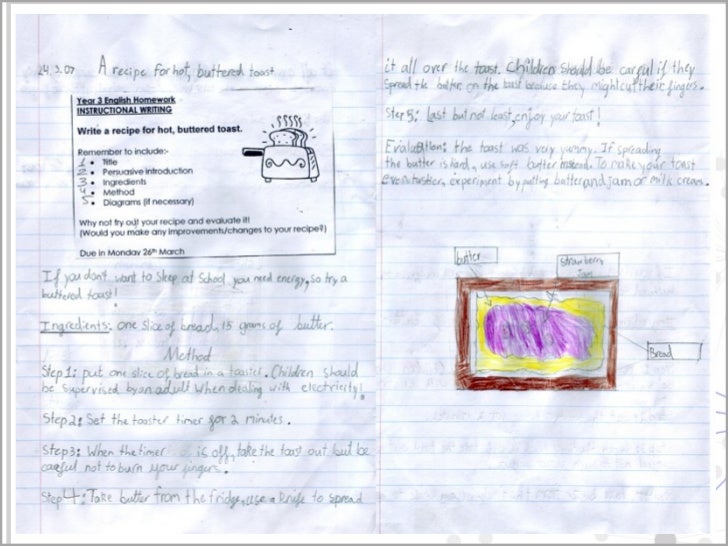 24.3.07 A recipe for hot, buttered toast
Year 3 English Homework
INSTRUCTIONAL WRITING
Write a recipe for hot, buttered toast.
Remember to include:-
1 • Title
2 • Persuasive introduction
3 • Ingredients
4 • Method
5 • Diagrams (if necessary)
Why not try out your recipe and evaluate it!
(Would you make any improvements/changes to your recipe?)
Due in Monday 26th March
If you don't want to sleep at school you need energy, so try a
buttered toast!
Ingredients: one slice of bread, 15 grams of butter.
Method
Step 1: put one slice of bread in a toaster. Children should
be supervised by an adult when dealing with electricity!
Step 2: Set the toaster timer for 2 minutes.
Step 3: When the timer is off, take the toast out but be
careful not to burn your fingers.
Step 4: Take butter from the fridge, use a knife to spread
it all over the toast. Children should be careful if they
spread the butter on the toast because they might cut their fingers.
Step 5: Last but not least, enjoy your toast!
Evaluation: the toast was very yummy. If spreading
the butter is hard, use soft butter instead. To make your toast
even tastier, experiment by putting butter and jam or milk cream.
butter
strawberry
Jam
Bread